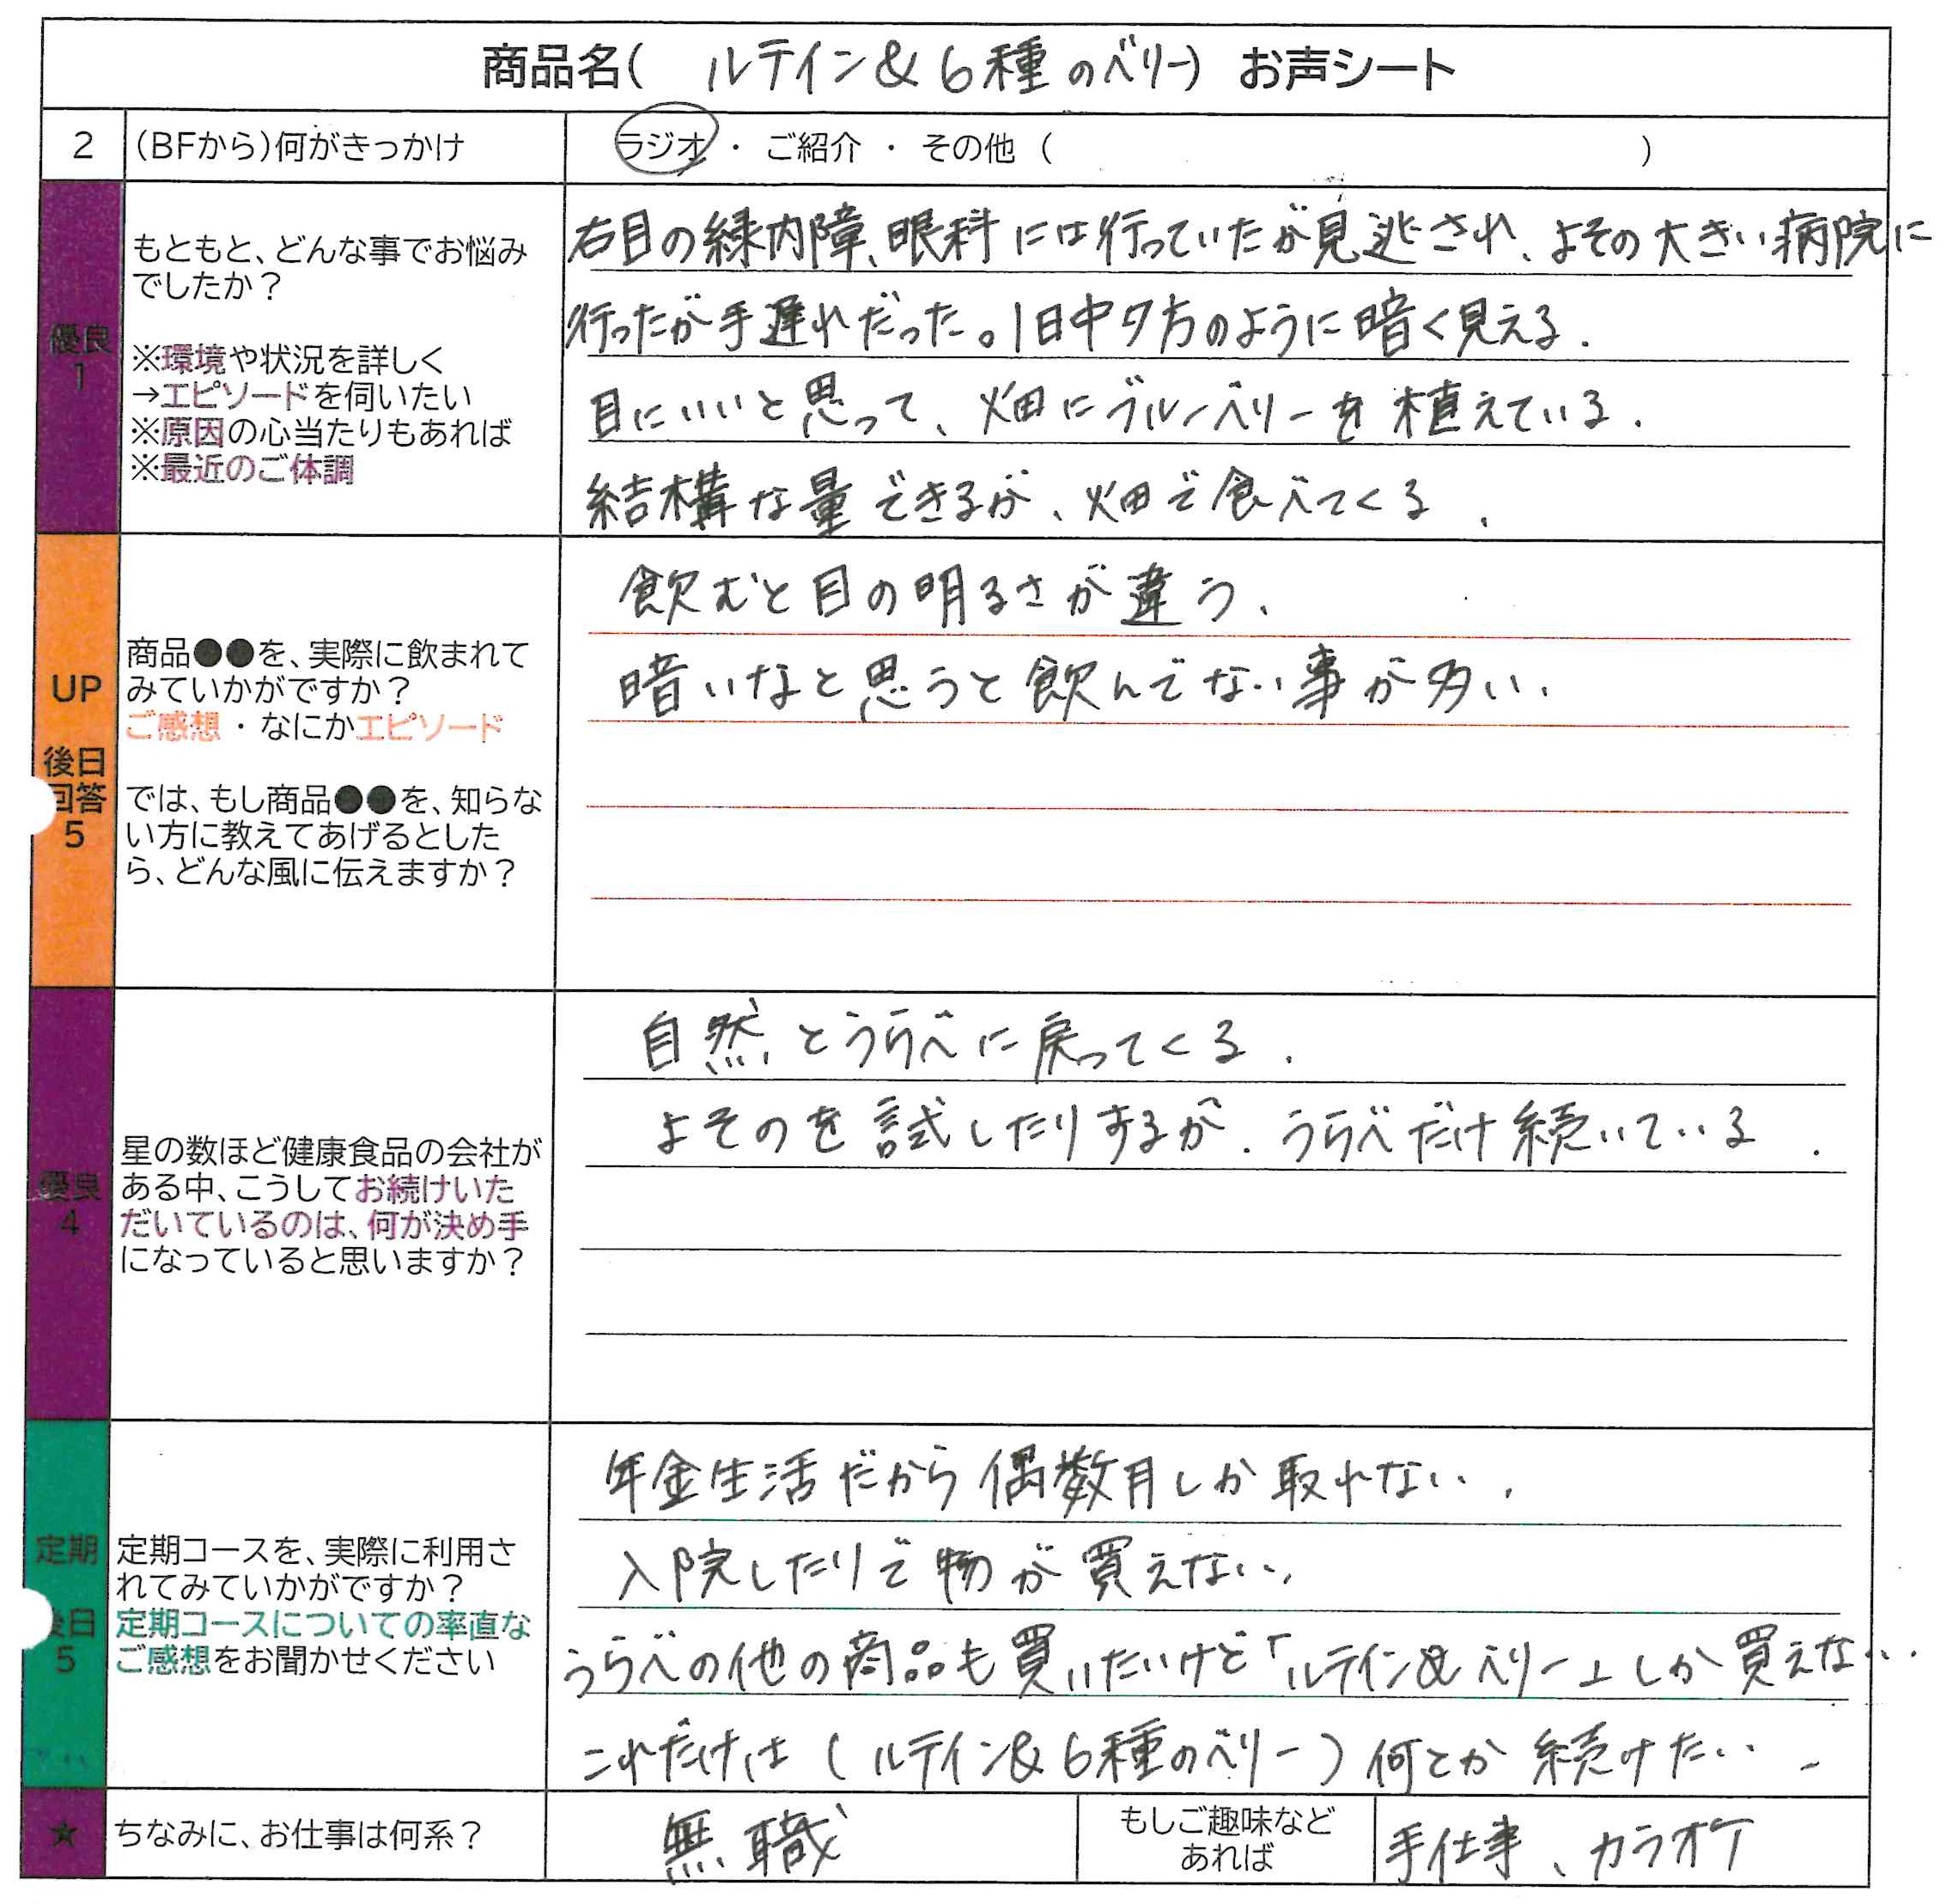 商品名( ルテイン&6種のベリー) お声シート
2 (BFから)何がきっかけ ラジオ ・ ご紹介 ・ その他 ( )
優良
1
もともと、どんな事でお悩み
でしたか?
※環境や状況を詳しく
→エピソードを伺いたい
※原因の心当たりもあれば
※最近のご体調
右目の緑内障、眼科には行っていたが見逃され、よその大きい病院に
行ったが手遅れだった。1日中夕方のように暗く見える.
目にいいと思って、畑にブルーベリーを植えている.
結構な量できるが、畑で食べてくる.
UP
後日
回答
5
商品●●を、実際に飲まれて
みていかがですか?
ご感想・なにかエピソード
では、もし商品●●を、知らな
い方に教えてあげるとした
ら、どんな風に伝えますか?
飲むと目の明るさが違う、
暗いなと思うと飲んでない事が多い、
優良
4
星の数ほど健康食品の会社が
ある中、こうしてお続けいた
だいているのは、何が決め手
になっていると思いますか?
自然とうらべに戻ってくる.
よそのを試したりするが.うらべだけ続いている.
定期
後日
5
定期コースを、実際に利用さ
れてみていかがですか?
定期コースについての率直な
ご感想をお聞かせください
年金生活だから偶数月しか取れない.
入院したりで物が買えない、
うらべの他の商品も買いたいけど「ルテイン&ベリー」しか買えない.
これだけは(ルテイン&6種のベリー)何とか続けたい.
★ ちなみに、お仕事は何系? 無職
もしご趣味など
あれば
手仕事、カラオケ